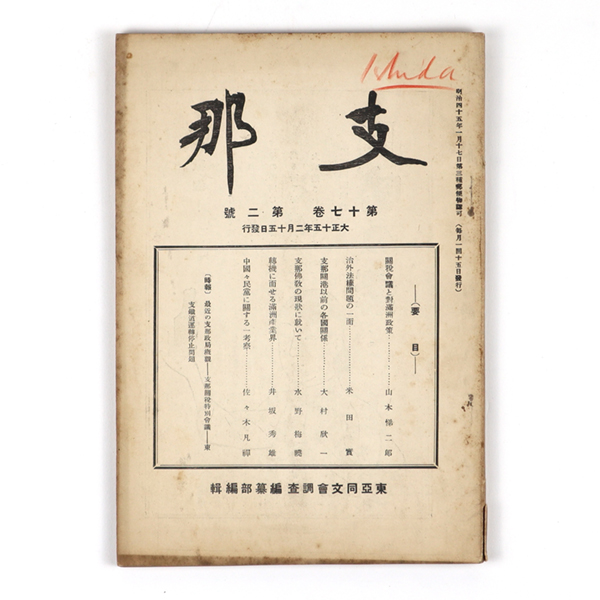 支那
第十七卷　第二號
大正十五年二月十五日發行
明治四十五年一月十七日第三種郵便物認可（每月一回十五日發行）
（要目）
關稅會議と對滿洲政策…………山本悌二郎
治外法權問題の一面…………米田實
支那開港以前の各國關係…………大村欣一
支那佛敎の現狀に就いて…………水野梅曉
轉機に面せる滿洲產業界…………井坂秀雄
中國々民黨に關する一考察…………佐々木凡禪
〔時報〕最近の支那政局槪觀——支那關稅特別會議——東
支鐵道運轉停止問題
東亞同文會調查編纂部編輯